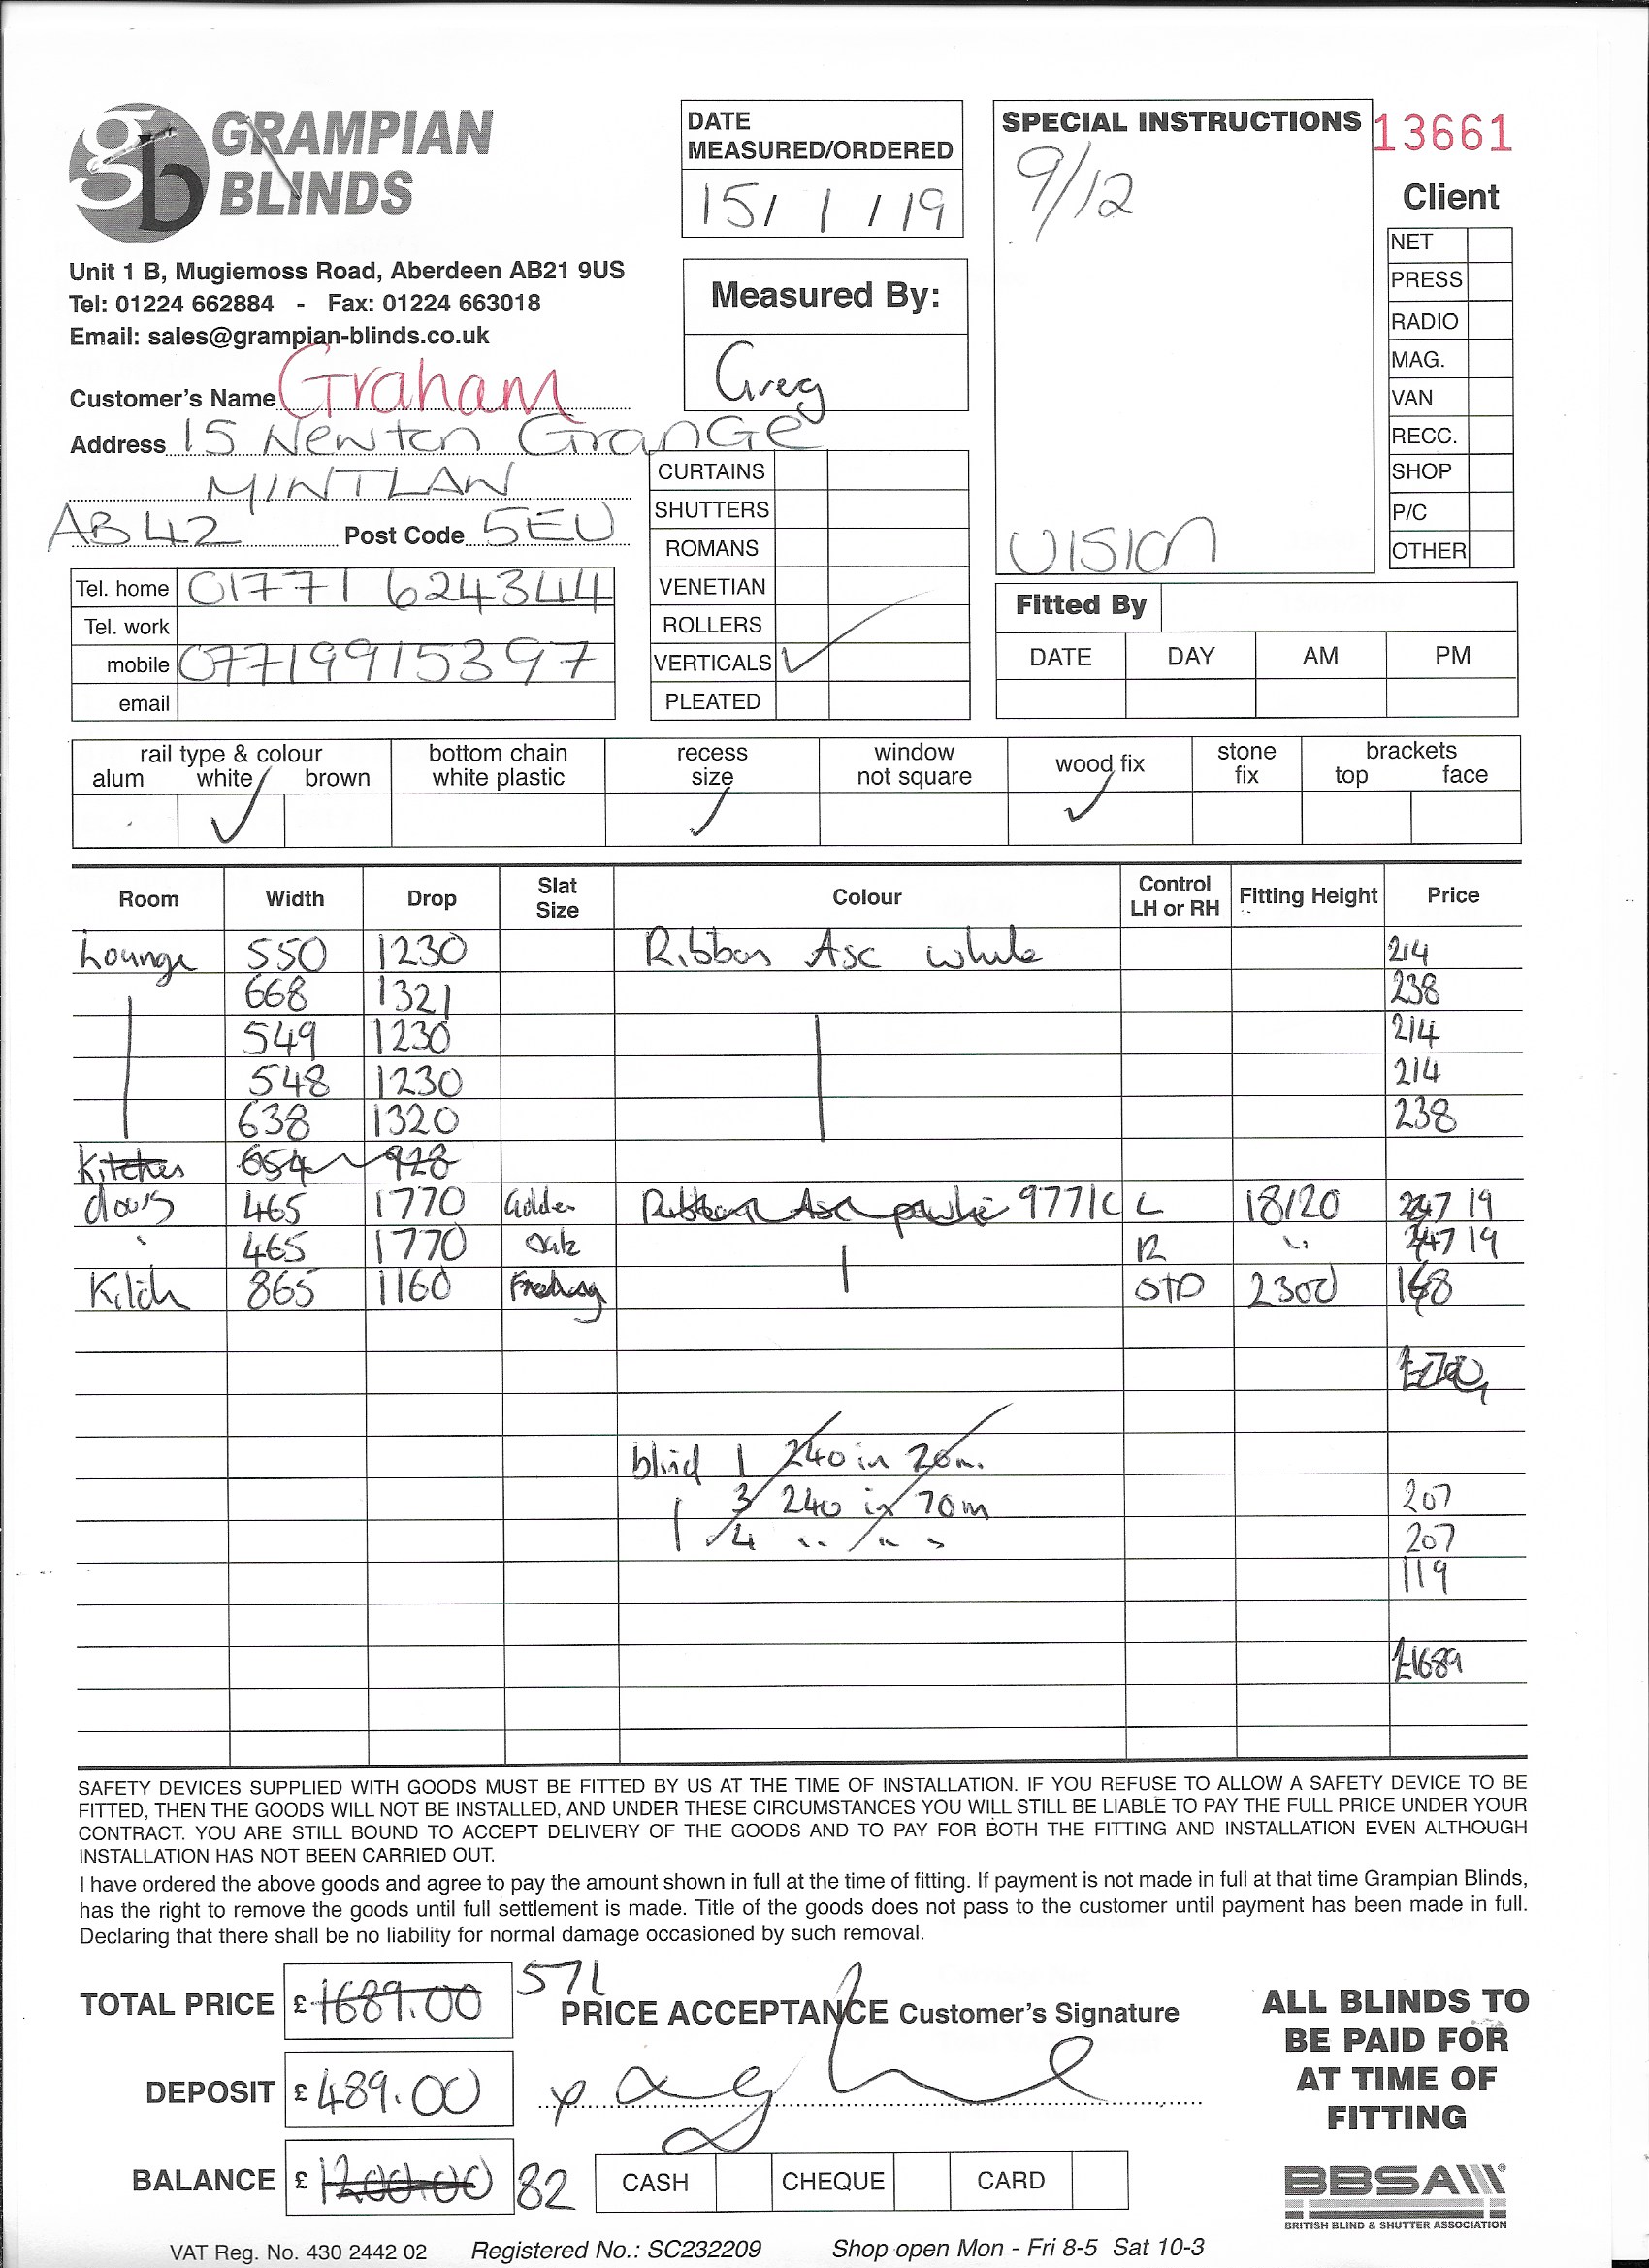 GRAMPIAN
BLINDS
Unit 1 B, Mugiemoss Road, Aberdeen AB21 9US
Tel: 01224 662884 - Fax: 01224 663018
Email: sales@grampian-blinds.co.uk
DATE
MEASURED/ORDERED
15/1/19
Measured By:
Greg
SPECIAL INSTRUCTIONS
9/12
VISION
13661
Client
NET
PRESS
RADIO
MAG.
VAN
RECC.
SHOP
P/C
OTHER
Customer's Name Graham
Address 15 Newton Grange
MINTLAW
AB42 Post Code 5EU
Tel. home 01771 624344
Tel. work
mobile 07719915397
email
CURTAINS
SHUTTERS
ROMANS
VENETIAN
ROLLERS
VERTICALS ✓
PLEATED
Fitted By
DATE DAY AM PM
rail type & colour bottom chain recess window wood fix stone brackets
alum white brown white plastic size not square fix top face
✓ ✓ ✓
Room Width Drop Slat Size Colour Control LH or RH Fitting Height Price
Lounge 550 1230 Ribbon Asc white 214
668 1321 238
549 1230 214
548 1230 214
638 1320 238
Kitchen 654 928
doors 465 1770 Golden Ribbon Asc 9771C L 18/20 19
" 465 1770 Oak R " 19
Kitch 865 1160 STD 2300
blind 1 240 in 20m.
3 240 in 70m
4 " " "
207
207
119
£1689
SAFETY DEVICES SUPPLIED WITH GOODS MUST BE FITTED BY US AT THE TIME OF INSTALLATION. IF YOU REFUSE TO ALLOW A SAFETY DEVICE TO BE
FITTED, THEN THE GOODS WILL NOT BE INSTALLED, AND UNDER THESE CIRCUMSTANCES YOU WILL STILL BE LIABLE TO PAY THE FULL PRICE UNDER YOUR
CONTRACT. YOU ARE STILL BOUND TO ACCEPT DELIVERY OF THE GOODS AND TO PAY FOR BOTH THE FITTING AND INSTALLATION EVEN ALTHOUGH
INSTALLATION HAS NOT BEEN CARRIED OUT.
I have ordered the above goods and agree to pay the amount shown in full at the time of fitting. If payment is not made in full at that time Grampian Blinds,
has the right to remove the goods until full settlement is made. Title of the goods does not pass to the customer until payment has been made in full.
Declaring that there shall be no liability for normal damage occasioned by such removal.
TOTAL PRICE £ 1689.00 571
PRICE ACCEPTANCE Customer's Signature
DEPOSIT £ 489.00
BALANCE £ 1200.00 82
CASH CHEQUE CARD
ALL BLINDS TO
BE PAID FOR
AT TIME OF
FITTING
BBSA
BRITISH BLIND & SHUTTER ASSOCIATION
VAT Reg. No. 430 2442 02 Registered No.: SC232209 Shop open Mon - Fri 8-5 Sat 10-3